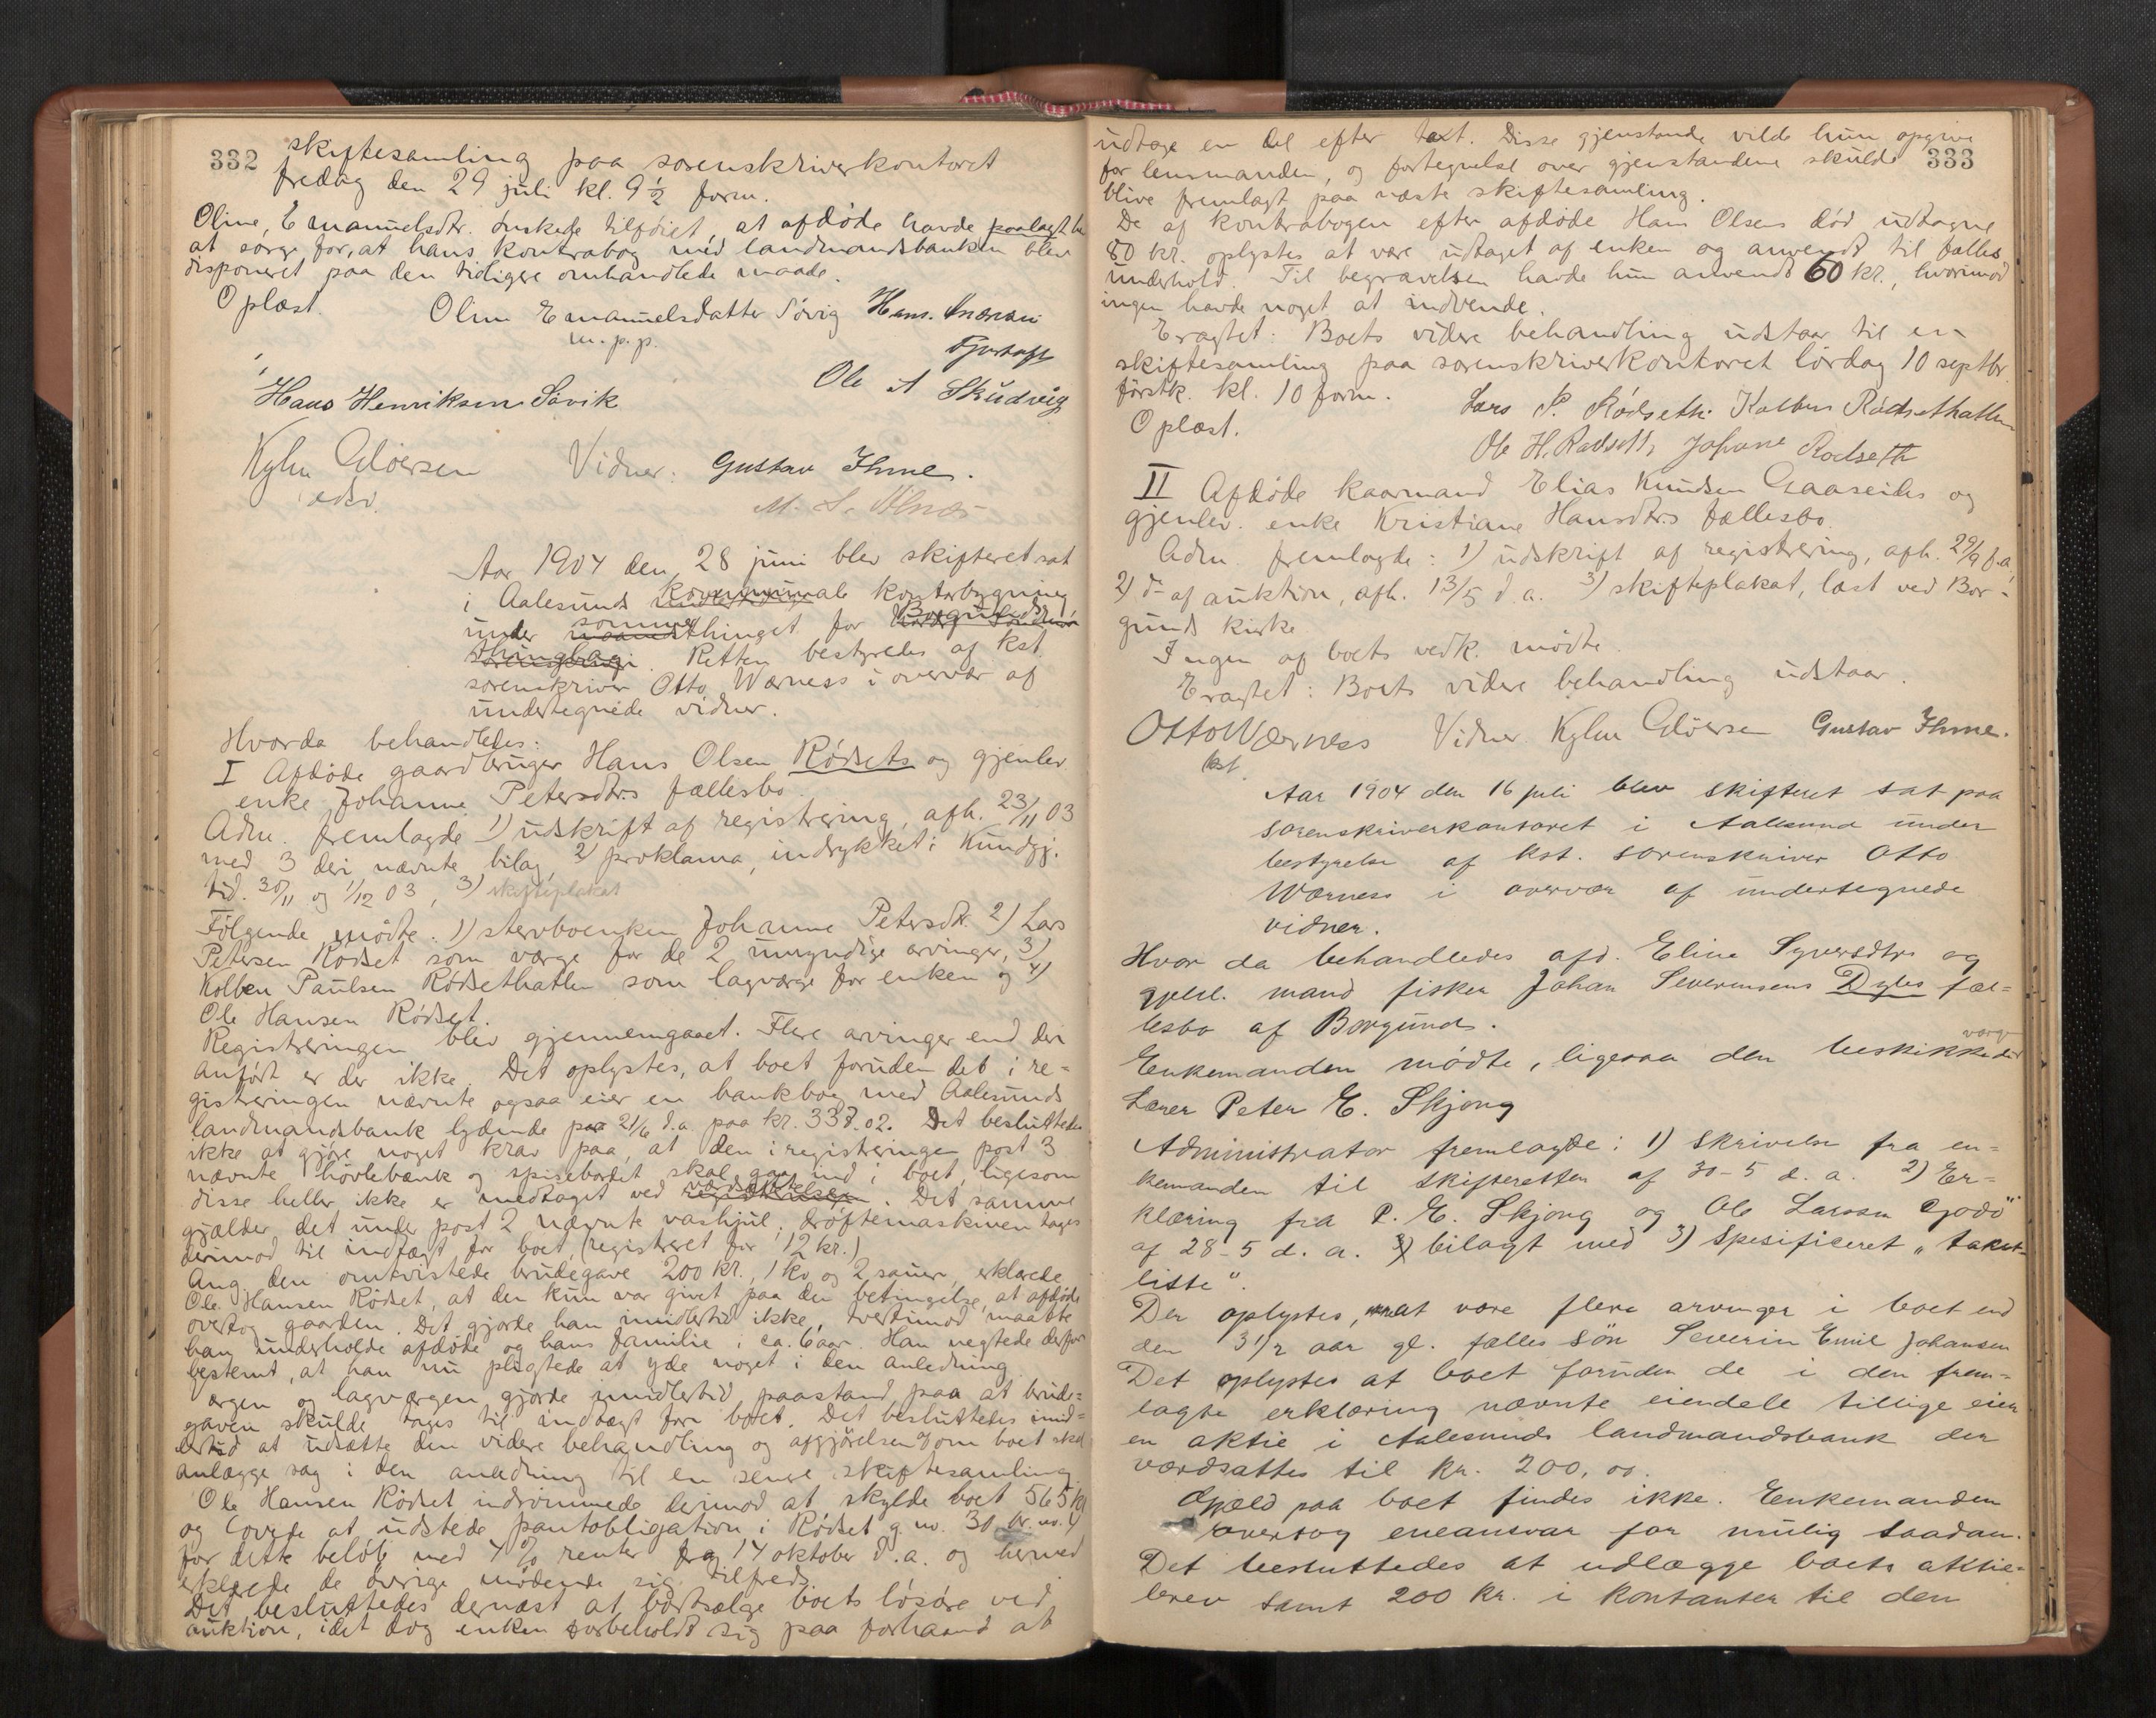 332
skiftesamling paa sorenskriverkontoret
fredag den 29 juli kl. 9 1/2 form.
Oline Emanuelsdtr. ønskede tilføiet, at afdøde havde paalagt
at sørge for, at hans kontrabog med landmandsbanken blev
disponeret paa den tidligere omhandlede maade.
Oplæst. Oline Emanuelsdatter Søvig Hans
m. p. p.
Ole A Skudvig
Hans Henriksen Søvik
Kylm Gløersen Vidner: Gustav Ihme.
edsv. M. S. Alnæs
Aar 1904 den 28 juni blev skifteret sat
i Aalesunds kommunale kontorbygning
under sommerthinget for Borgunds
thinglag. Retten bestyredes af kst.
sorenskriver Otto Wærness i overvær af
undertegnede vidner.
Hvorda behandledes:
I Afdøde gaardbruger Hans Olsen Rødsets og gjenlev.
enke Johanne Petersdtrs fællesbo.
Adm. fremlagde 1) udskrift af registrering, afh. 23/11 03
med 3 deri nævnte bilag, 2) proklama, indrykket i Kundgj.
tid. 30/11 og 1/12 03, 3) skifteplakat
Følgende mødte: 1) stervboenken Johanne Petersdtr. 2) Lars
Petersen Rødset som værge for de 2 umyndige arvinger, 3)
Kolben Paulsen Rødsethatlen som lagværge for enken og 4)
Ole Hansen Rødset.
Registreringen blev gjennemgaaet. Flere arvinger end deri
anført er der ikke. Det oplystes, at boet foruden det i re=
gistreringen nævnte ogsaa eier en bankbog med Aalesunds
landmandsbank lydende paa 21/6 d.a. paa kr. 338.02. Det besluttedes
ikke at gjøre noget krav paa, at den i registreringen post 3
nævnte høvlebænk og spisebordet skal gaa ind i boet, ligesom
disse heller ikke er medtaget ved værdsættelsen. Det samme
gjælder det under post 2 nævnte vashjul; drøftemaskinen tages
derimod til indtægt for boet (registreret for 12 kr.)
Ang. den omtvistede brudegave 200 kr., 1 ko og 2 sauer, erklærede
Ole Hansen Rødset, at den kun var givet paa den betingelse, at afdøde
overtog gaarden. Det gjorde han imidlertid ikke, tvertimod maatte
han underholde afdøde og hans familie i ca. 6 aar. Han negtede derfor
bestemt, at han nu pligtede at yde noget i den anledning.
ærgen og lagværgen gjorde imidlertid paastand paa at brude=
gaven skulde tages til indtægt for boet. Det besluttedes imid=
lertid at udsætte den videre behandling og afgjørelsen om boet skal
anlægge sag i den anledning til en senere skiftesamling.
Ole Hansen Rødset indrømmede derimod at skylde boet 565 kr
og lovede at udstede pantobligation i Rødset g. no. 30 br. no. 4
for dette beløb med 4 % renter fra 14 oktober d.a. og hermed
erklærede de øvrige mødende sig tilfreds.
Det besluttedes dernæst at bortsælge boets løsøre ved
auktion, idet dog enken forbeholdt sig paa forhaand at
333
udtage en del efter taxt. Disse gjenstande vilde hun opgive
for lensmanden, og fortegnelse over gjenstandene skulde
blive fremlagt paa næste skiftesamling.
De af kontrabogen efter afdøde Hans Olsens død udtagne
80 kr. oplystes at være udtaget af enken og anvendt til fælles
underhold. Til begravelsen havde hun anvendt 60 kr., hvorimod
ingen havde noget at indvende.
Eragtet: Boets videre behandling udstaar til en
skiftesamling paa sorenskriverkontoret lørdag 10 septbr.
førstk. kl. 10 form.
Oplæst. Lars P. Rødseth Kolben Rødsethatlen
Ole H. Rødseth Johane Rødseth
II Afdøde kaarmand Elias Knudsen Gaaseides og
gjenlev. enke Kristiane Hansdtrs fællesbo.
Adm. fremlagde: 1) udskrift af registrering, afh. 29/9 f.a.,
2) do af auktion, afh. 13/5 d.a. 3) skifteplakat, læst ved Bor=
gunds kirke
Ingen af boets vedk. mødte.
Eragtet: Boets videre behandling udstaar.
Otto Wærness Vidner Kylm Gløersen Gustav Ihme.
kst.
Aar 1904 den 16 juli blev skifteret sat paa
sorenskriverkontoret i Aalesund under
bestyrelse af kst. sorenskriver Otto
Wærness i overvær af undertegnede
vidner.
Hvor da behandledes afd. Eline Syversdtrs og
gjenl. mand fisker Johan Severinsens Dybs fæl=
lesbo af Borgund.
Enkemanden mødte, ligesaa den beskikkede værge
Lærer Peter E. Skjong
Administrator fremlagde: 1) Skrivelse fra en=
kemanden til skifteretten af 30-5 d. a. 2) Er=
klæring fra P. E. Skjong og Ole Larsen Godø
af 28-5 d. a. bilagt med 3) Spesificeret "takst=
liste".
Der oplystes, at være flere arvinger i boet end
den 3 1/2 aar gl. fælles søn Severin Emil Johansen
Det oplystes at boet foruden de i den frem=
lagte erklæring nævnte eiendele tillige eier
en aktie i Aalesunds landmandsbank der
værdsattes til kr. 200,00.
Gjæld paa boet findes ikke. Enkemanden
overtog eneansvar for mulig saadan.
Det besluttedes at udlægge boets aktie=
brev samt 200 kr. i kontanter til den